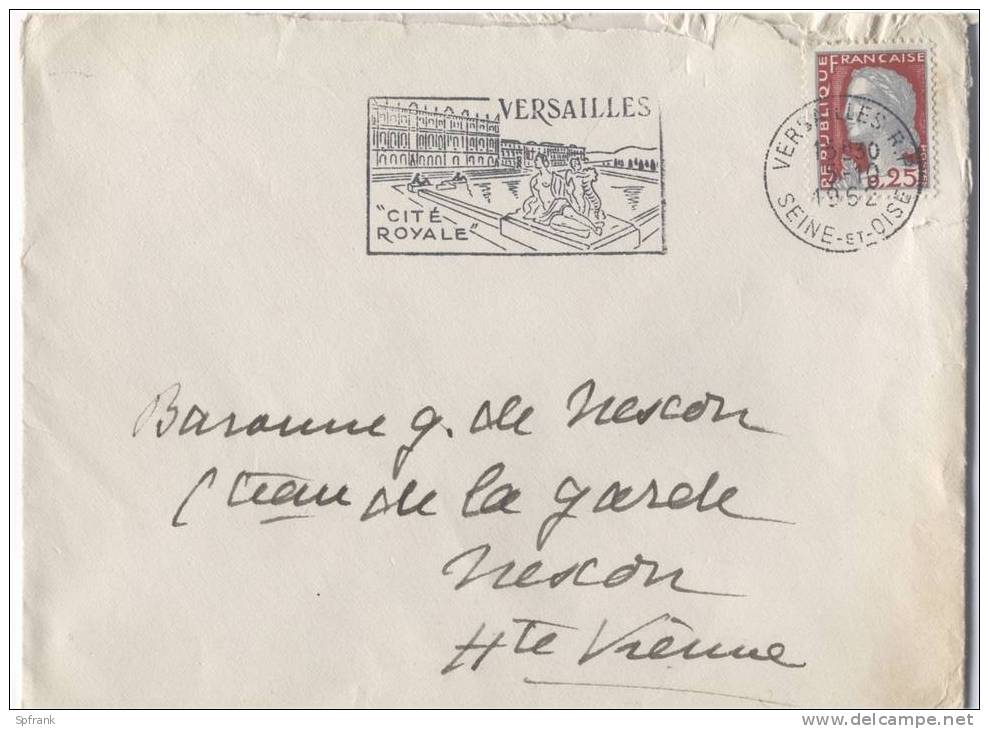 VERSAILLES
"CITÉ
ROYALE"
RÉPUBLIQUE FRANÇAISE
0,25
VERSAILLES R.P.
1962
SEINE-ET-OISE
Baronne g. de Nexon
Cteau de la garde
Nexon
Hte Vienne
Spfrank
www.delcampe.net